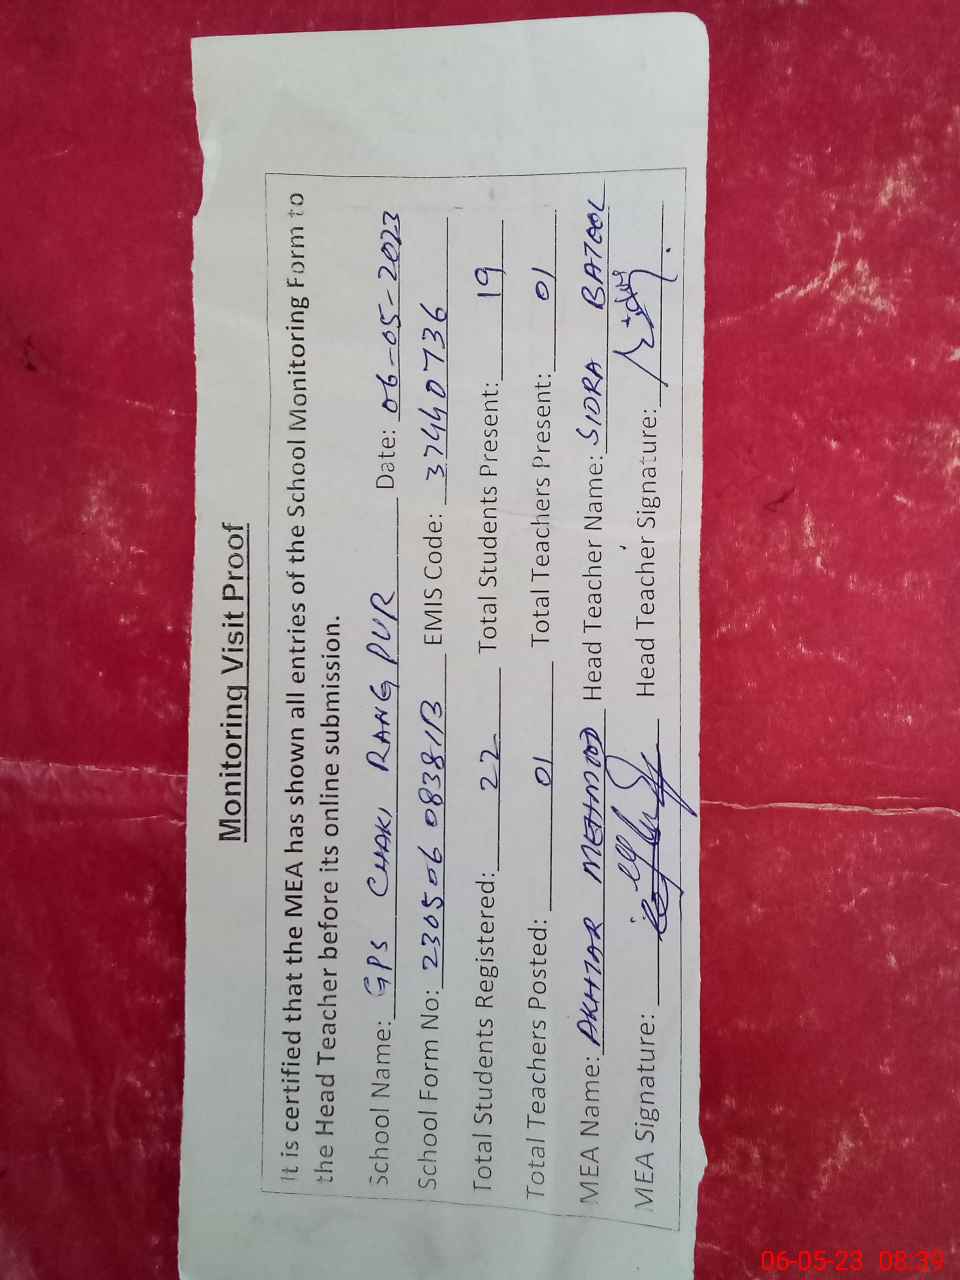 Monitoring Visit Proof
It is certified that the MEA has shown all entries of the School Monitoring Form to
the Head Teacher before its online submission.
School Name: GPS CHAKI RANG PUR Date: 06-05-2023
School Form No: 230506083811B EMIS Code: 37440736
Total Students Registered: 22 Total Students Present: 19
Total Teachers Posted: 01 Total Teachers Present: 01
MEA Name: AKHTAR MEHMOOD Head Teacher Name: SIDRA BATOOL
MEA Signature: Head Teacher Signature:
06-05-23 08:39